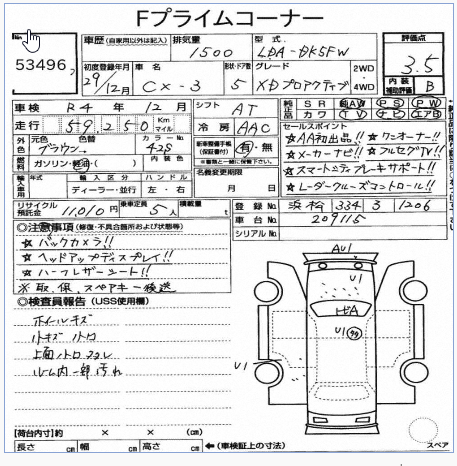 Fプライムコーナー
53496
車歴 (自家用以外は記入) 排気量 型式
1500 LDA-DK5FW
評価点
3.5
内装補助評価 B
初度登録年月 車名 形状・ドア数 グレード
29/12月 CX-3 5 XDプロアクティブ
2WD・4WD
車検 R4年12月 シフト AT
純正品 SR AW PS PW
カワ TV ナビ エアB
走行 59,250 Km マイル
冷房 AAC
セールスポイント
☆AA初出品!! ☆ワンオーナー!!
☆メーカーナビ!! ☆フルセグTV!!
☆スマートシティブレーキサポート!!
☆レーダークルーズコントロール!!
外色 元色 色替 カラーNo
ブラウン 42S
新車整備手帳(保証書付) 有・無
燃料 ガソリン・軽油・( ) 内装色
名義変更期限 月 日
輸入車用 年式 輸入区分 ハンドル
ディーラー・並行 左・右
リサイクル預託金 11,010円 乗車定員 5人 積載量 t
登録No 浜松 334 3 1206
車台No 209115
シリアルNo
◎注意事項 (修復・不具合箇所および状態等)
☆バックカメラ!!
☆ヘッドアップディスプレイ!!
☆ハーフレザーシート!!
※取、保、スペアキー後送
◎検査員報告 (USS使用欄)
ホイールキズ
ルーム内一部汚れ
AU1
U1
トビA
U1
U1
スペア
【荷台内寸】約 × × (cm)
長さ cm 幅 cm 高さ cm ←(車検証上の寸法)